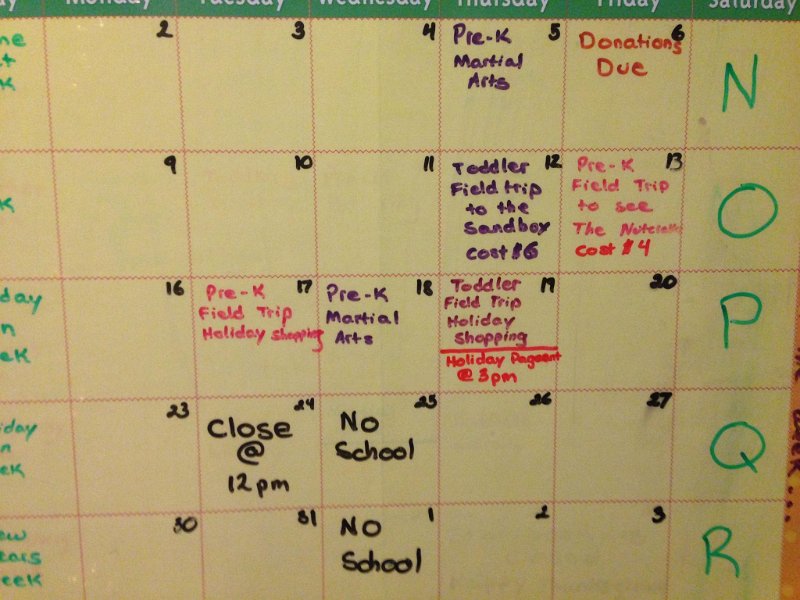 Monday Tuesday Wednesday Thursday Friday Saturday
2 3 4 5 6
Pre-K
Martial
Arts
Donations
Due
N
9 10 11 12 13
Toddler
Field trip
to the
Sandbox
Cost $6
Pre-K
Field Trip
to see
The
Cost $4
O
16 17 18 19 20
day
ek
Pre-K
Field Trip
Holiday Shopping
Pre-K
Martial
Arts
Toddler
Field Trip
Holiday
Shopping
Holiday Pageant
@ 3pm
P
23 24 25 26 27
iday
n
eek
Close
@
12pm
No
School
Q
30 31 1 2 3
ew
ears
eek
No
School
R